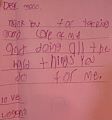 Dear mom.
Think you for tacking
good care of me
and doing all the
hard things you
do for me.
love